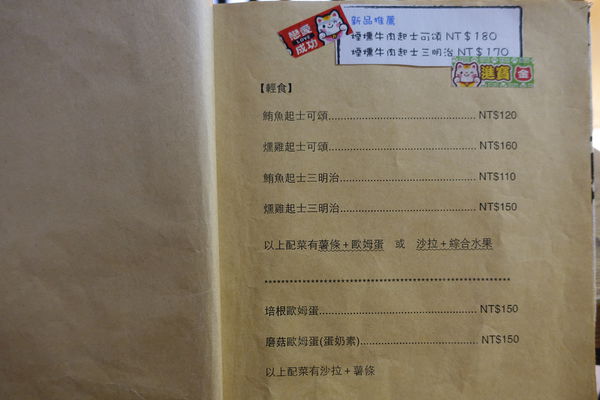 戀愛
LOVE
成功
新品推薦
煙燻牛肉起士可頌 NT$180
煙燻牛肉起士三明治 NT$170
進寶 金
【輕食】
鮪魚起士可頌................................................ NT$120
燻雞起士可頌................................................ NT$160
鮪魚起士三明治............................................. NT$110
燻雞起士三明治............................................. NT$150
以上配菜有薯條+歐姆蛋 或 沙拉+綜合水果
**************************************************
培根歐姆蛋................................................... NT$150
磨菇歐姆蛋(蛋奶素)...................................... NT$150
以上配菜有沙拉+薯條